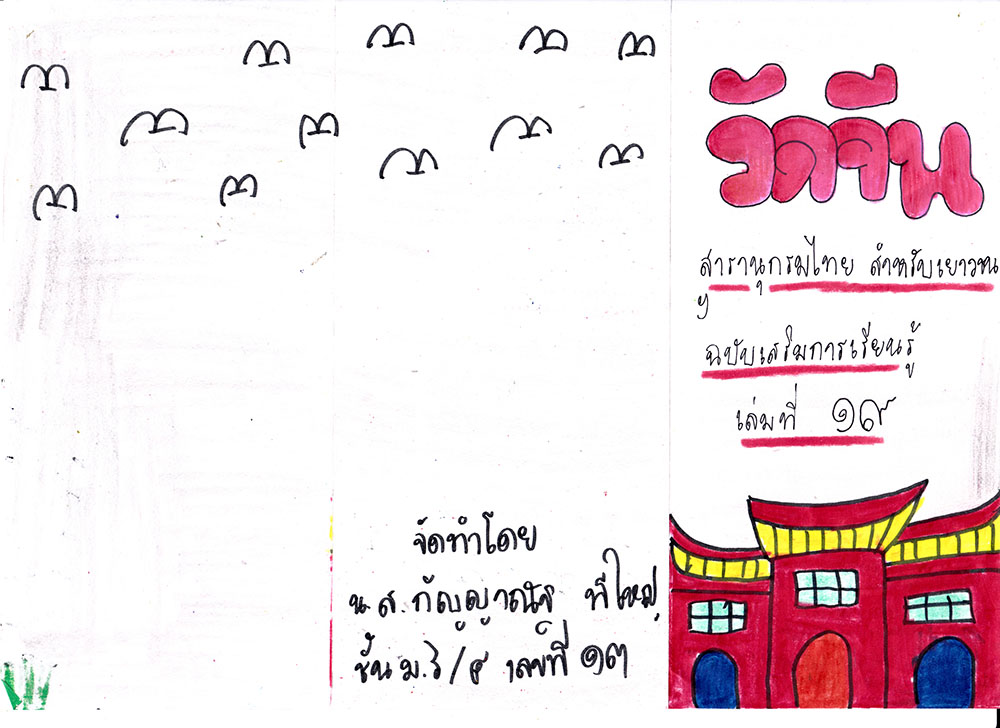 วัดจีน
สารานุกรมไทย สำหรับเยาวชน
ฯ
ฉบับเสริมการเรียนรู้
เล่มที่ ๑๙
จัดทำโดย
น.ส.กัญญาณัฐ
ชั้น ม. เลขที่ ๑๓